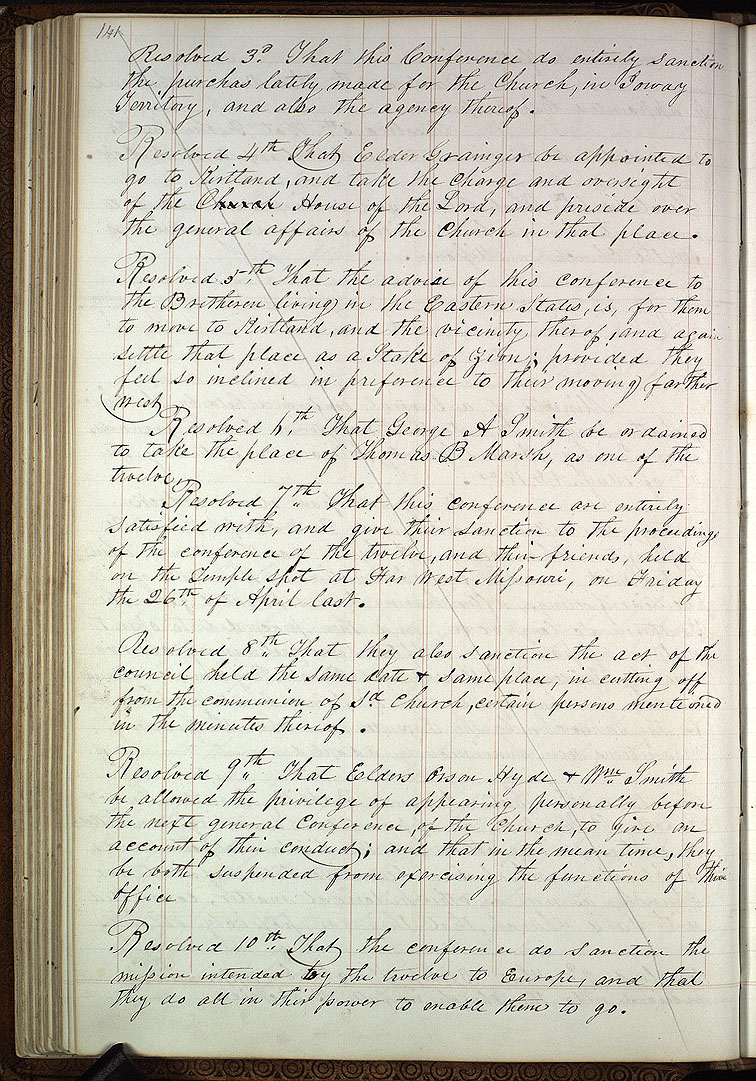 141
Resolved 3d. That this Conference do entirely sanction
the purchas lately made for the Church, in Ioway
Territory, and also the agency thereof.
Resolved 4th That Elder Grainger be appointed to
go to Kirtland, and take the Charge and oversight
of the Church House of the Lord, and preside over
the general affairs of the Church in that place.
Resolved 5th. That the advise of this conference to
the Bretheren living in the Eastern States, is, for them
to move to Kirtland, and the vicinity therof, and again
settle that place as a Stake of Zion; provided they
feel so inclined in preference to their moving farther
west
Resolved 6th. That George A Smith be ordained
to take the place of Thomas B Marsh, as one of the
twelve,
Resolved 7th That this conference are entirely
satisfied with, and give their sanction to the proceedings
of the conference of the twelve, and their friends, held
on the Temple spot at Far West Missouri, on Friday
the 26th of April last.
Resolved 8th That they also sanction the act of the
council held the same date & same place, in cutting off
from the communion of sd Church, certain persons mentioned
in the minutes thereof.
Resolved 9th That Elders Orson Hyde & Wm Smith
be allowed the privilege of appearing personally before
the next general Conference, of the Church, to give an
account of their conduct; and that in the mean time, they
be both suspended from exercising the functions of their
office
Resolved 10th. That the conference do sanction the
mission intended by the twelve to Europe, and that
they do all in their power to enable them to go.